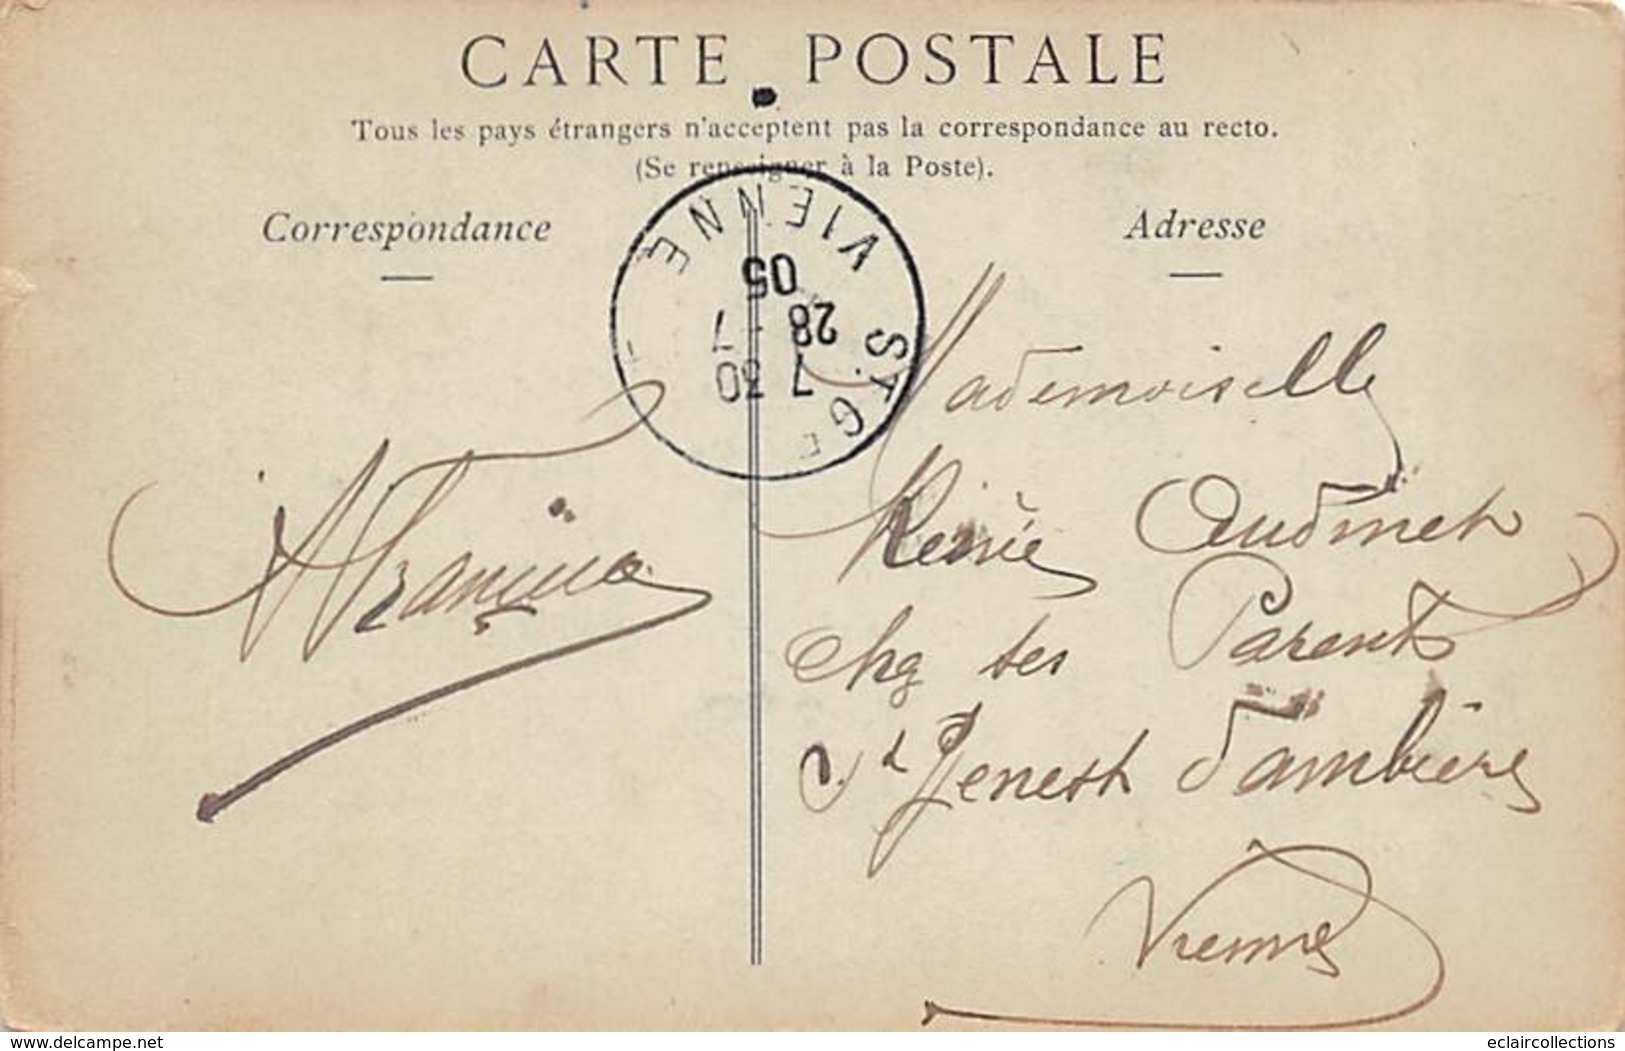 CARTE POSTALE
Tous les pays étrangers n'acceptent pas la correspondance au recto.
(Se renseigner à la Poste).
Correspondance
Adresse
VIENNE
05
28 - 7
7 30
ST GE
Mademoiselle
Renée Audinet
chez ses Parents
St Genest d'ambière
Vienne
delcampe.net
eclaircollections